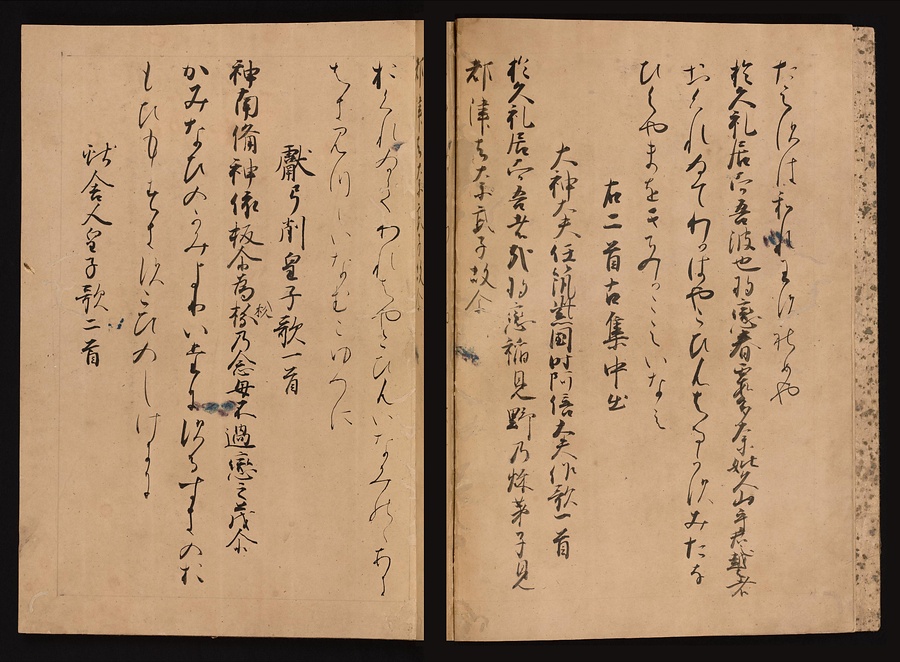 たえすはわれわすれめや
於久礼居而吾波也将戀春霞多奈妣久山乎君越者
おくれゐてわれはやこひんはるかすみたな
ひくやまをきみかこえいなは
右二首古集中出
大神大夫任筑紫國時阿倍大夫作歌一首
於久礼居而吾者哉将戀稲見野乃秋芽子見
都津去奈武子故尓
おくれゐてわれはやこひんいなみのゝあき
はきみつゝいなむこゆゑに
獻弓削皇子歌一首
神南備神依板尓為杉乃念母不過戀之茂尓
かみなひのかみよりいたにするすきのお
もひもすきすこひのしけきに
獻舎人皇子歌二首